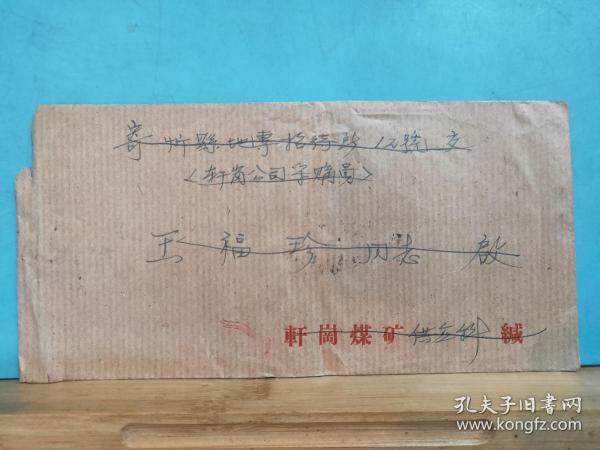 寄忻縣地專招待所12號交
<轩崗公司学購員>
王福珍同志啟
軒崗煤矿供应科緘
孔夫子旧书网
www.kongfz.com